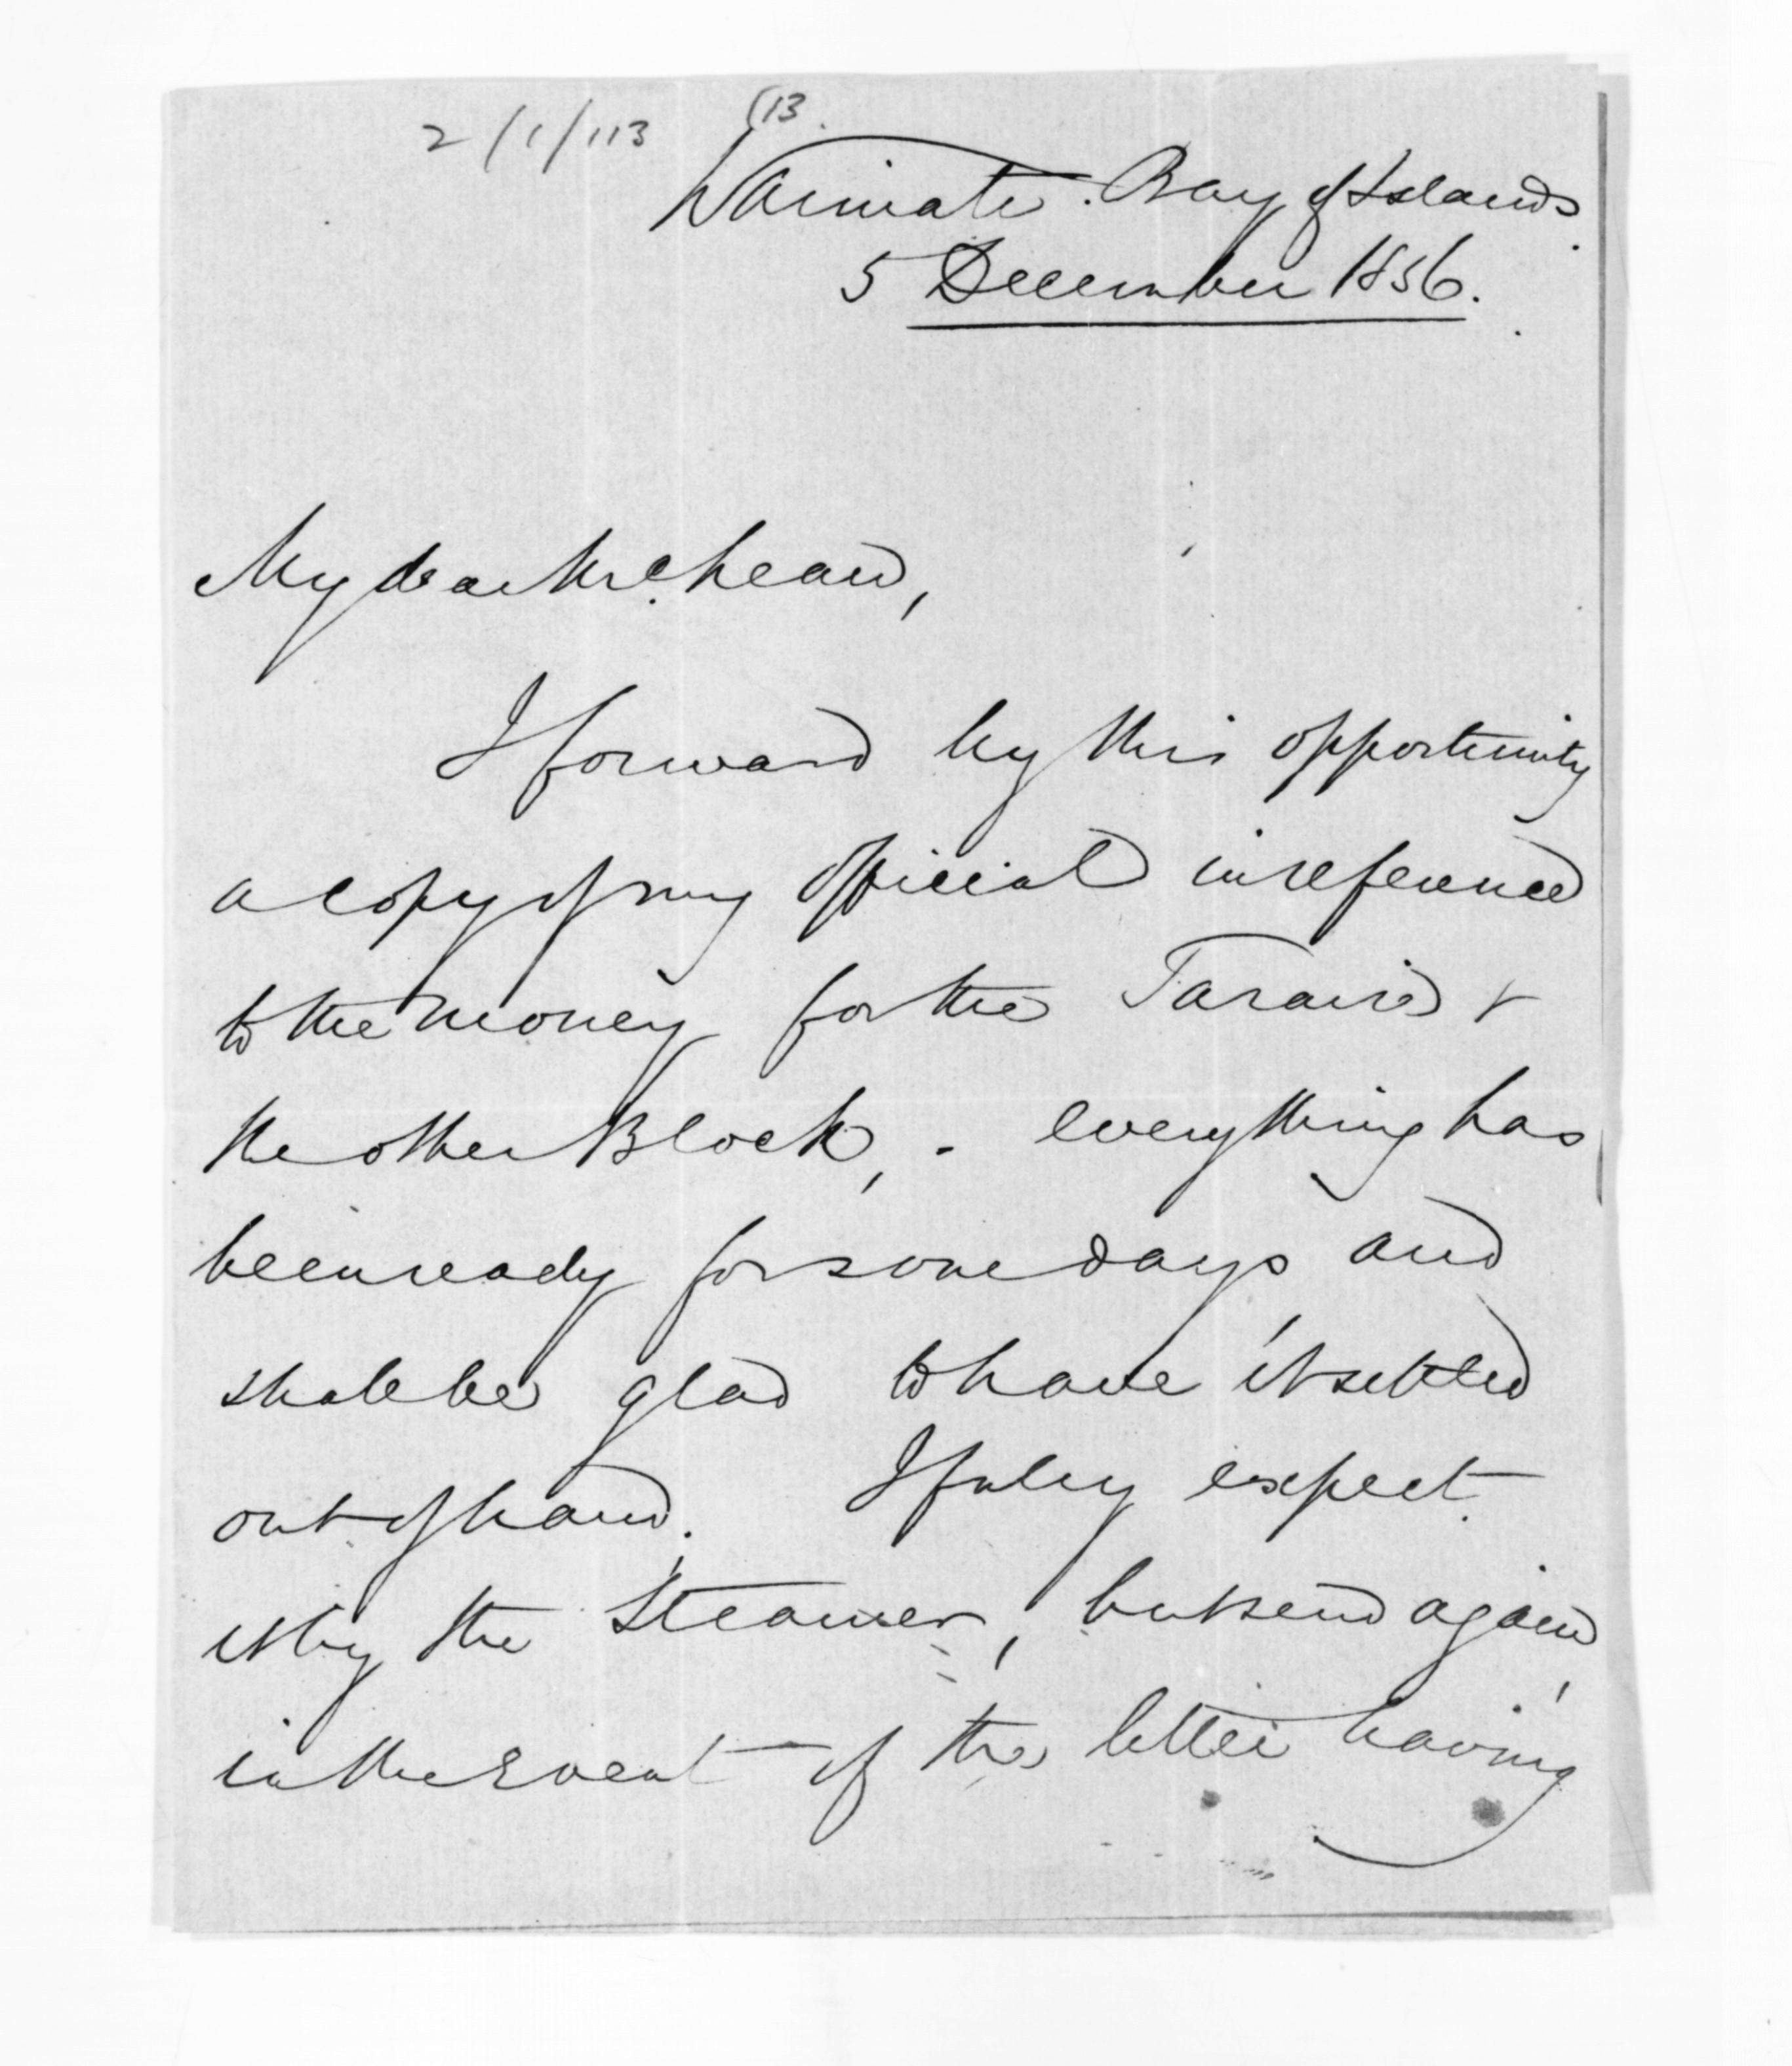 2/1/113 (13.
Waimate. Bay of Islands.
5 December 1856.
My dear McLean,
I forward by this opportunity
a copy of my official in reference
to the money for the Taraire &
the other Block, - everything has
been ready for some days and
shall be glad to have it settled
out of hand. I fully expect
it by the Steamer, but send again,
in the event of the letter having